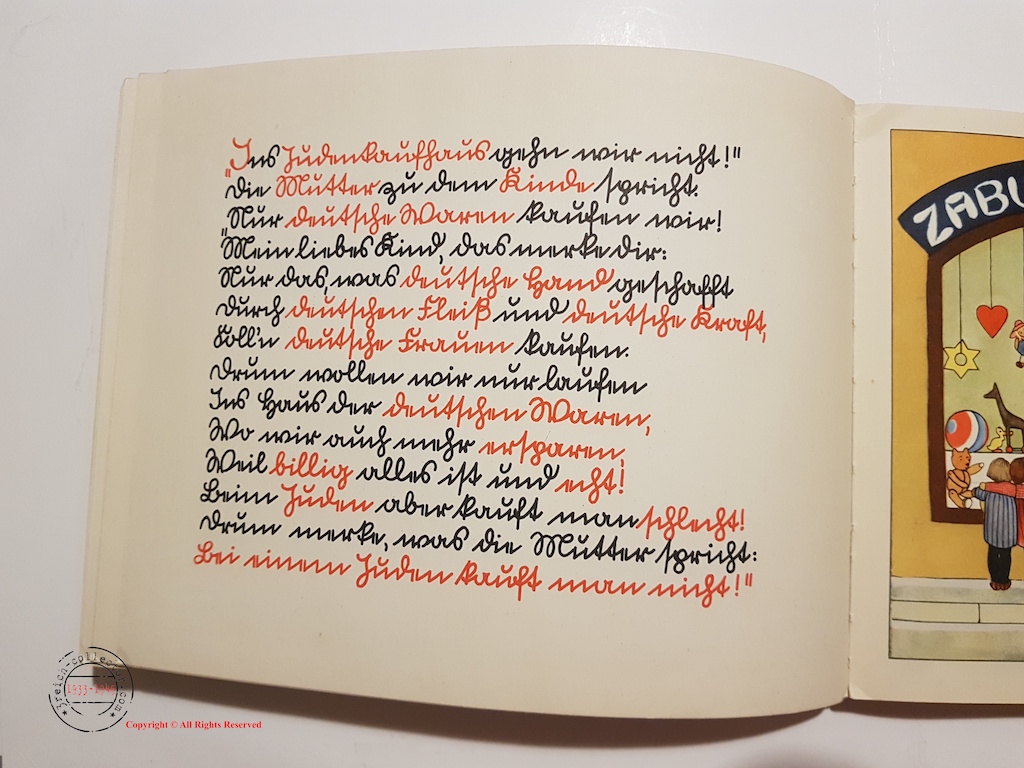 „Ins Judenkaufhaus gehn wir nicht!"
Die Mutter zu dem Kinde spricht.
„Nur deutsche Waren kaufen wir!
Mein liebes Kind, das merke dir:
Nur das, was deutsche Hand geschafft
Durch deutschen Fleiß und deutsche Kraft,
Soll'n deutsche Frauen kaufen.
Drum wollen wir nur laufen
Ins Haus der deutschen Waren,
Wo wir auch mehr ersparen,
Weil billig alles ist und echt!
Beim Juden aber kauft man schlecht!
Drum merke, was die Mutter spricht:
Bei einem Juden kauft man nicht!"
ZABU
3reich-collector.com
1933-1945
Copyright © All Rights Reserved